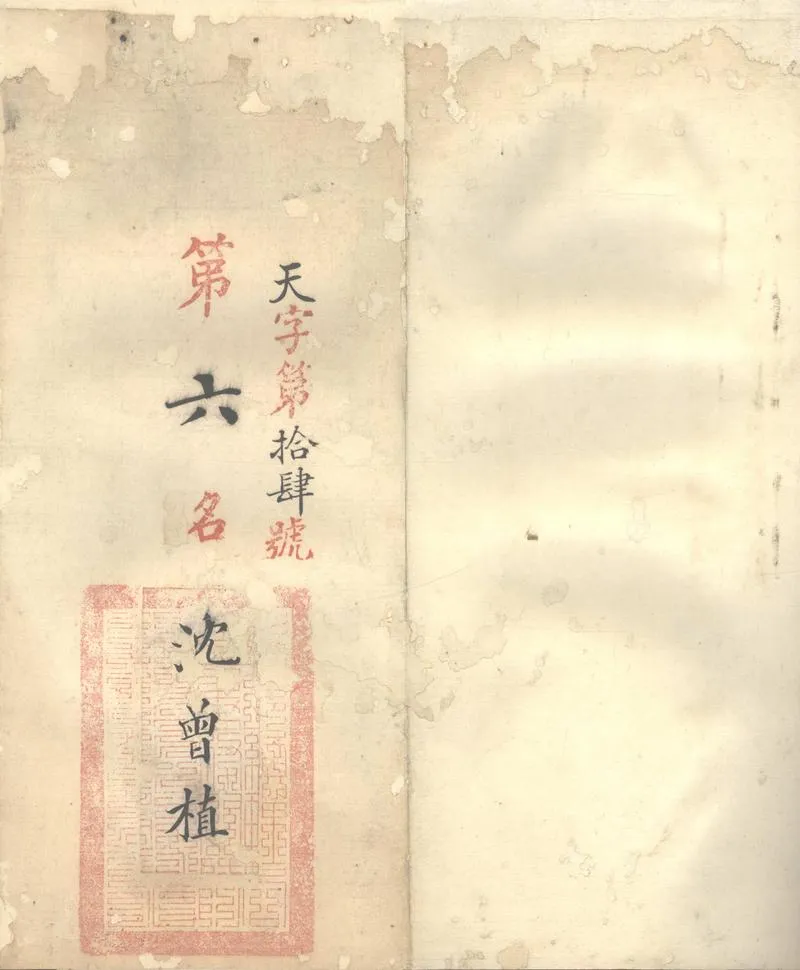 天字第拾肆號
第六名 沈曾植